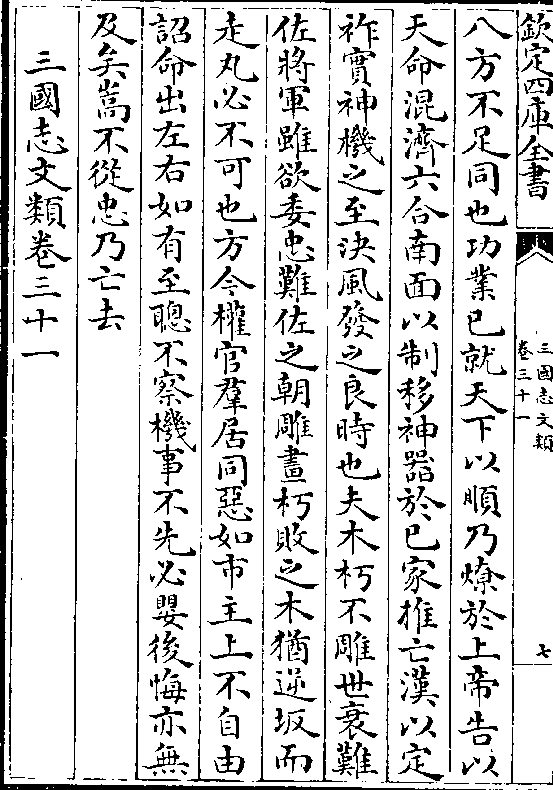 欽定四庫全書
三國志文類
卷三十一
七
八方不足同也功業已就天下以順乃燎於上帝告以
天命混濟六合南面以制移神器於已家推亡漢以定
祚實神機之至決風發之良時也夫木朽不雕世衰難
佐將軍雖欲委忠難佐之朝雕畫朽敗之木猶逆坂而
走丸必不可也方今權官羣居同惡如市主上不自由
詔命出左右如有至聰不察機事不先必嬰後悔亦無
及矣嵩不從忠乃亡去
三國志文類卷三十一